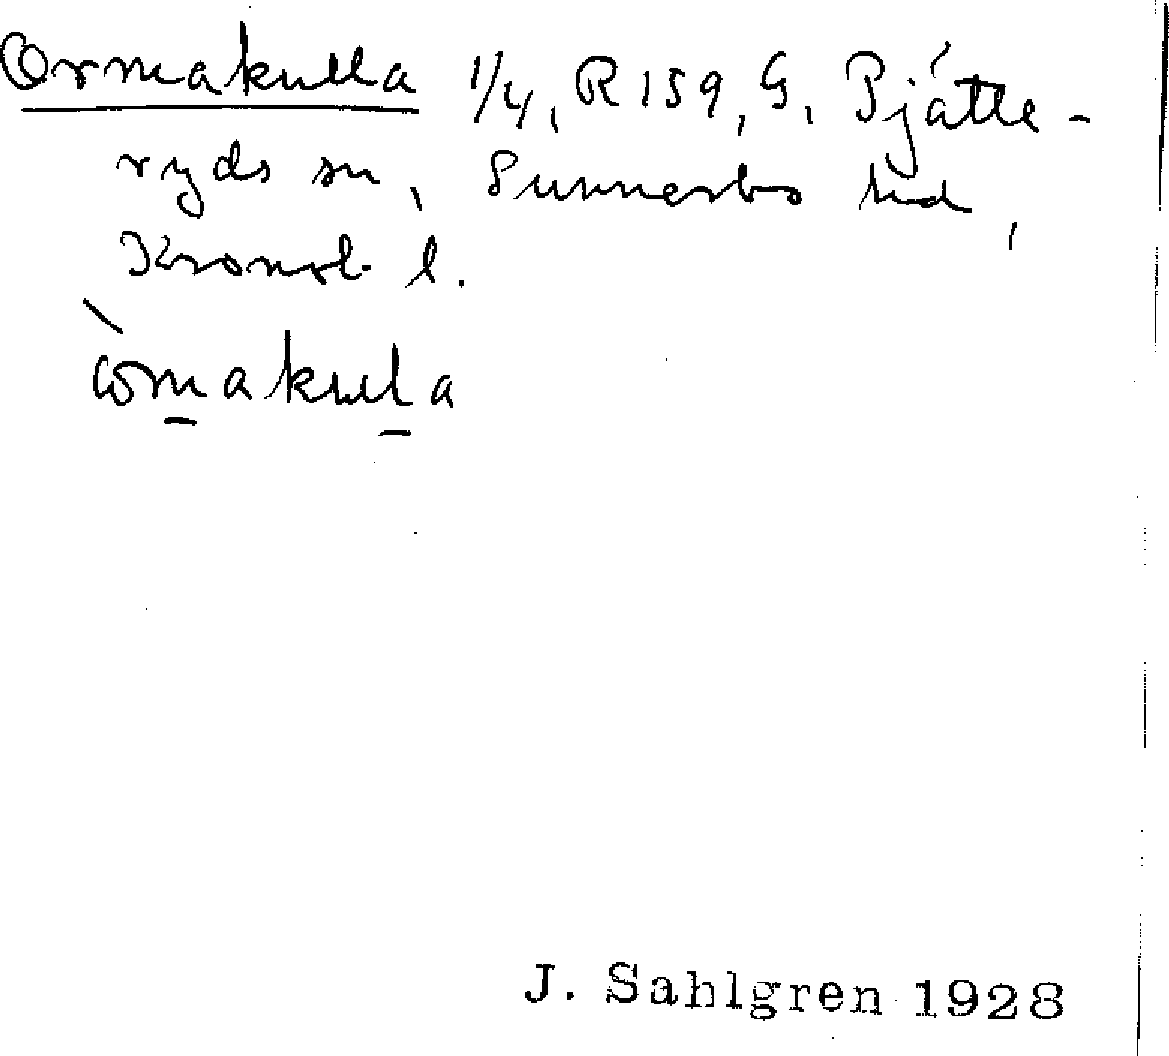 Ormakulla 1/4, R 159, G. Pjätte-
ryds sn, Sunnerbo hd,
Kronob. l.
òrmakulla
J. Sahlgren 1928